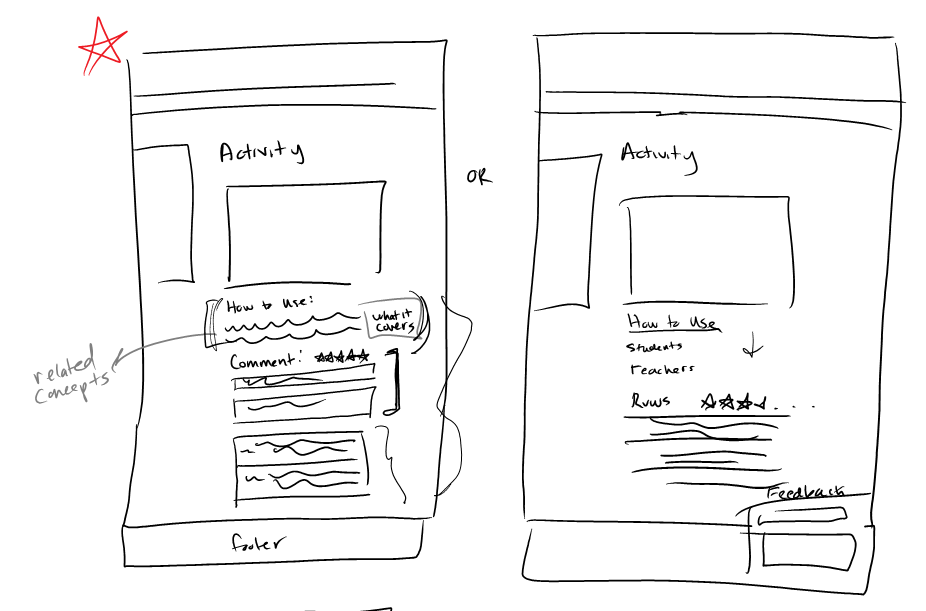 Activity
How to use:
what it
covers
Comment:
related
Concepts
footer
OR
Activity
How to Use
Students
Teachers
Feedback